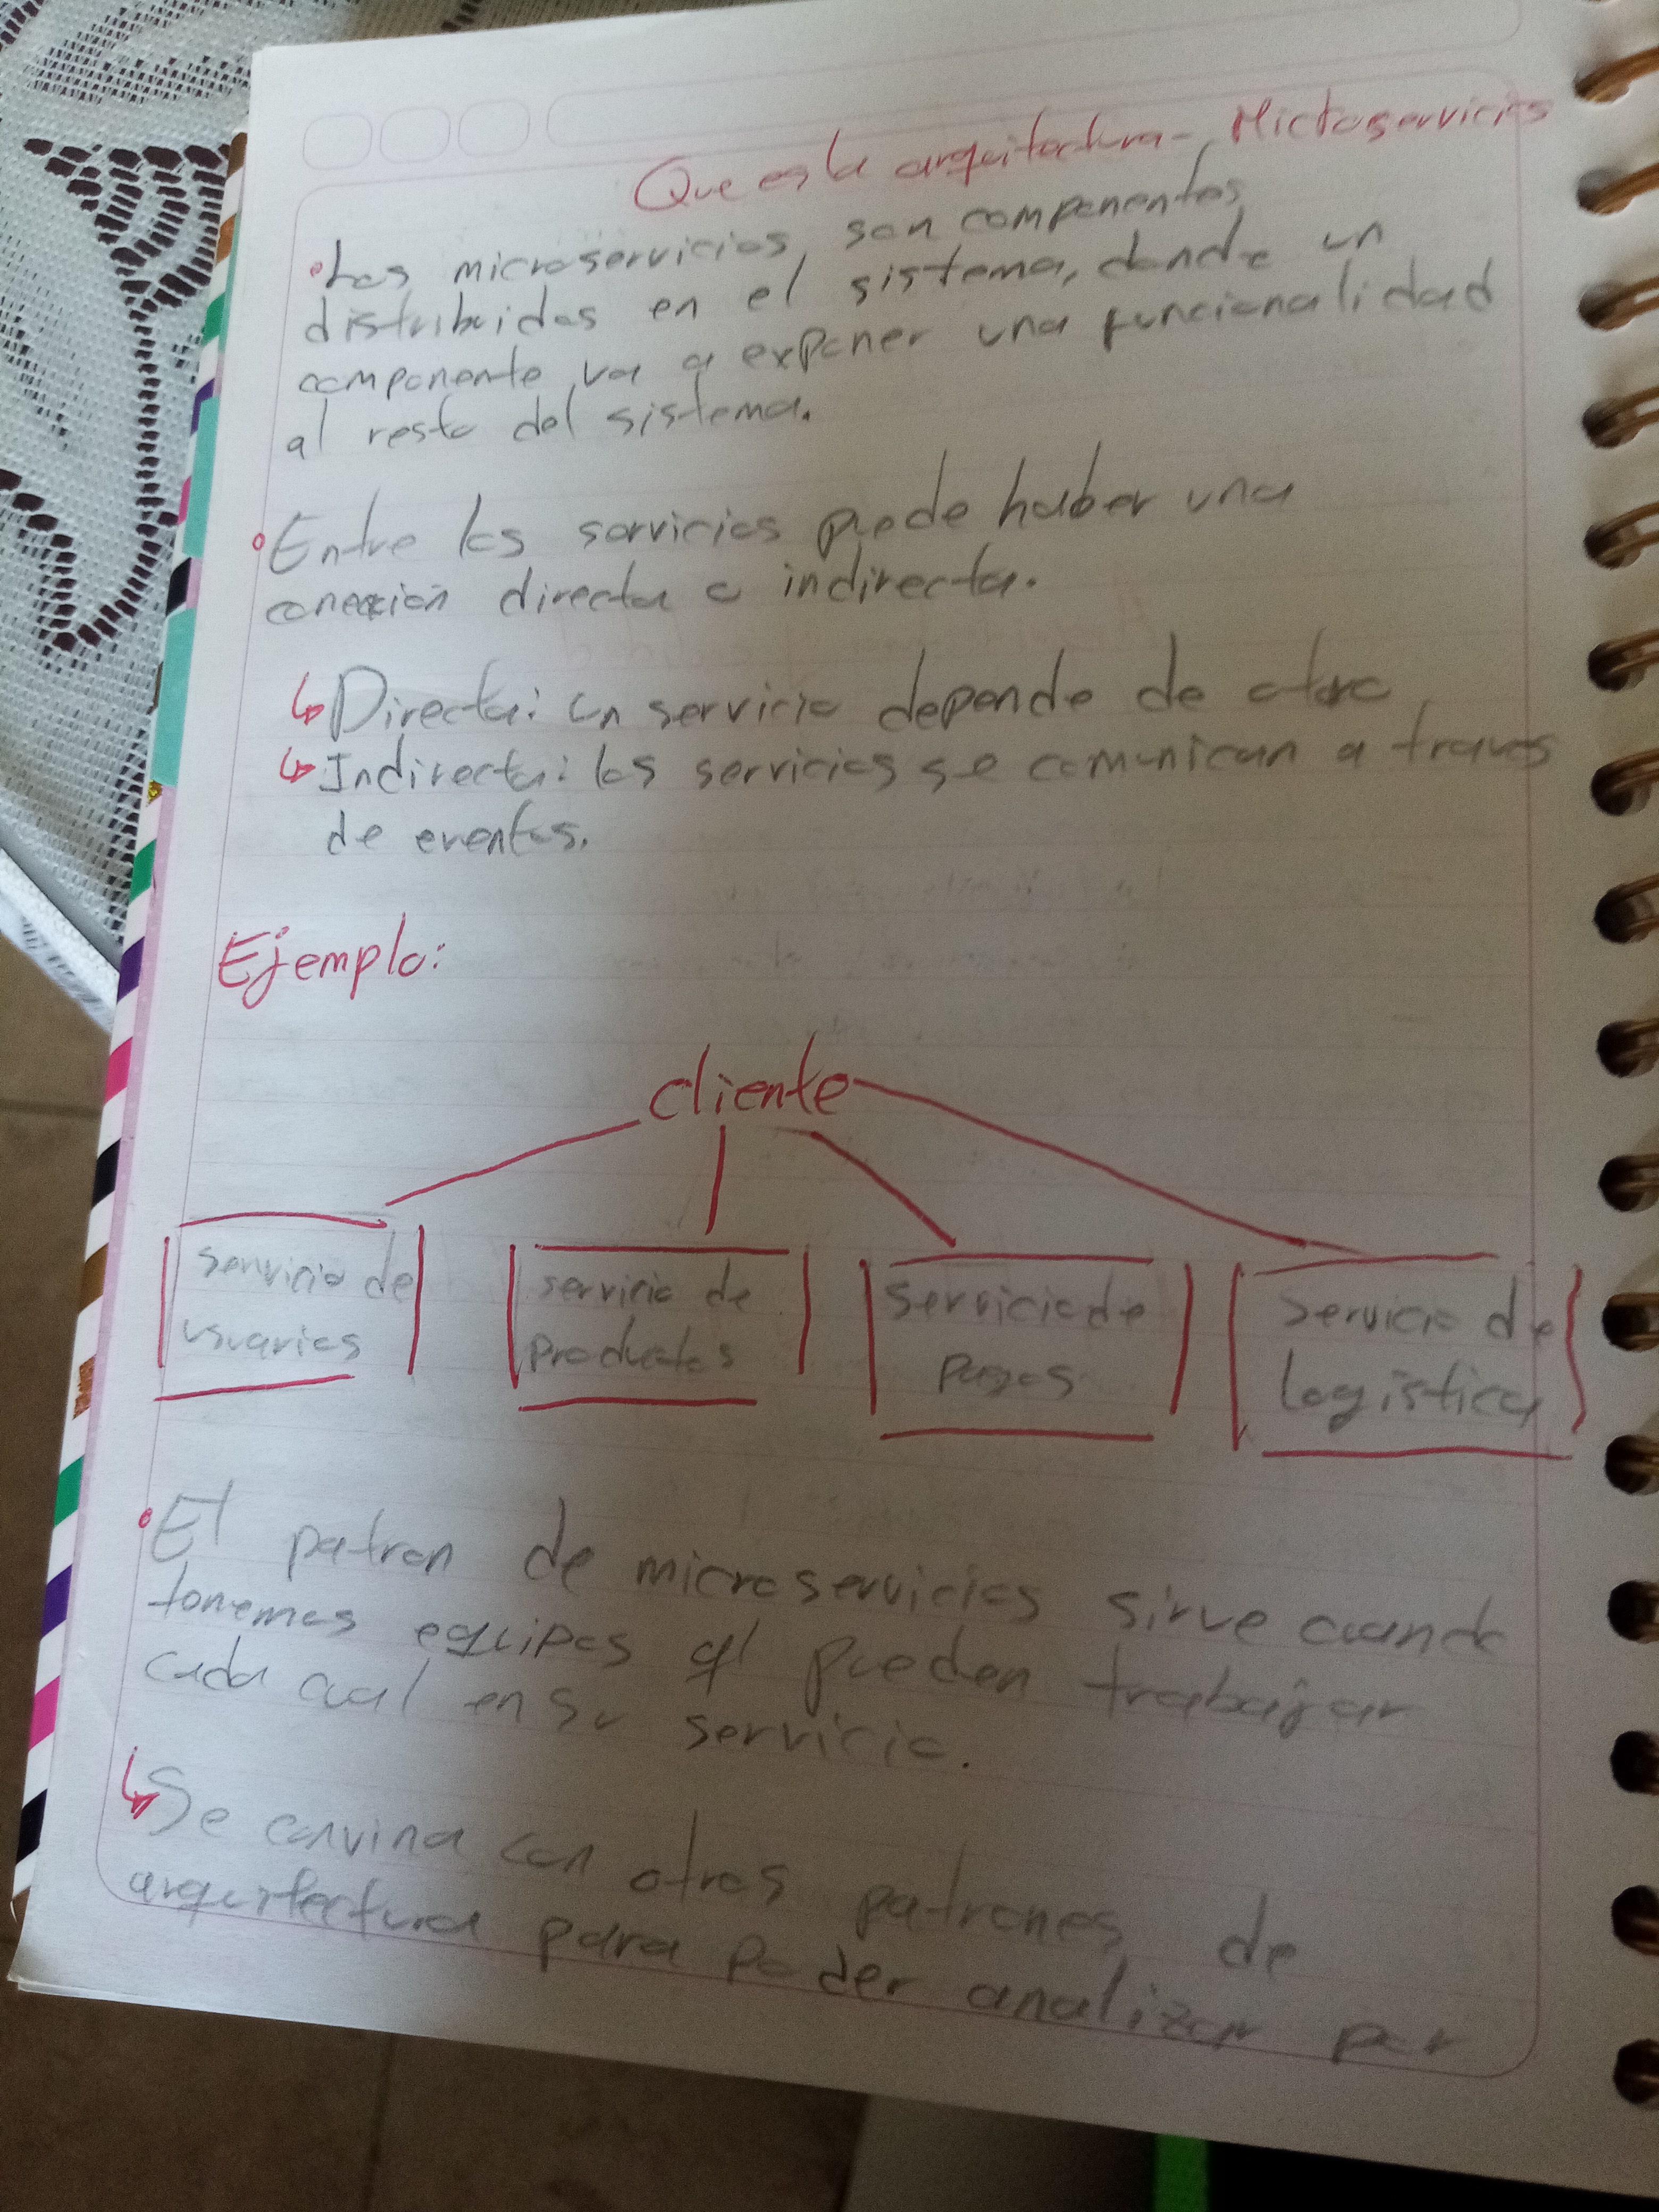 Que es la arquitectura - Microservicios
• Los microservicios, son componentes
distribuidos en el sistema, donde un
componente va a exponer una funcionalidad
al resto del sistema.
• Entre los servicios puede haber una
conexión directa o indirecta.
↳ Directa: un servicio depende de otro
↳ Indirecta: los servicios se comunican a traves
de eventos.
Ejemplo:
cliente
servicio de
usuarios
servicio de
productos
servicio de
pagos
servicio de
logistica
• El patron de microservicios sirve cuando
tenemos equipos q' pueden trabajar
cada cual en su servicio.
↳ Se convina con otros patrones de
arquitectura para poder analizar por